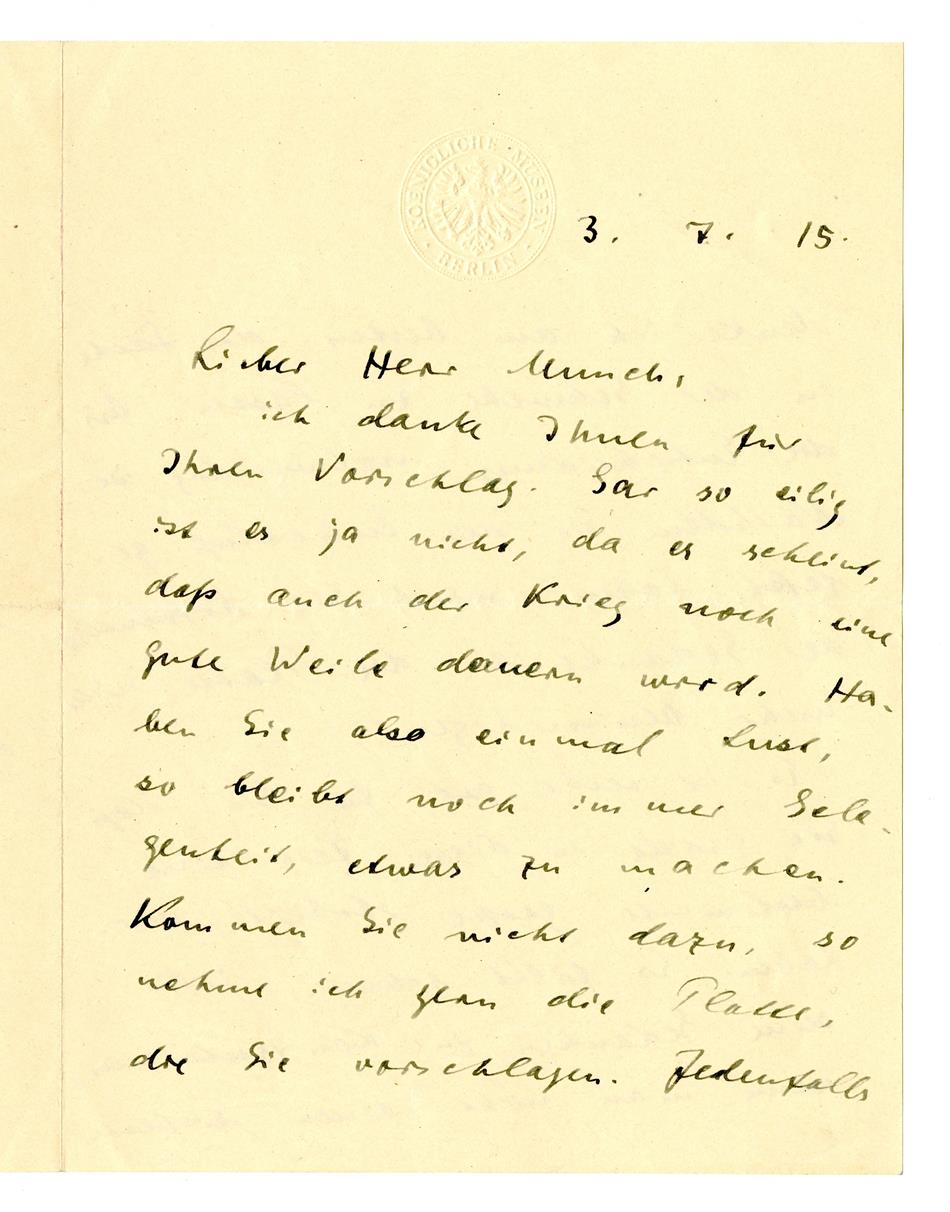 KOENIGLICHE · MUSEEN · BERLIN ·
3. 7. 15.
Lieber Herr Munch,
ich danke Ihnen für
Ihren Vorschlag. Gar so eilig
ist es ja nicht, da es scheint,
daß auch der Krieg noch eine
gute Weile dauern wird. Ha-
ben Sie also einmal Lust,
so bleibt noch immer Gele-
genheit, etwas zu machen.
Kommen Sie nicht dazu, so
nehme ich gern die Platte,
die Sie vorschlagen. Jedenfalls